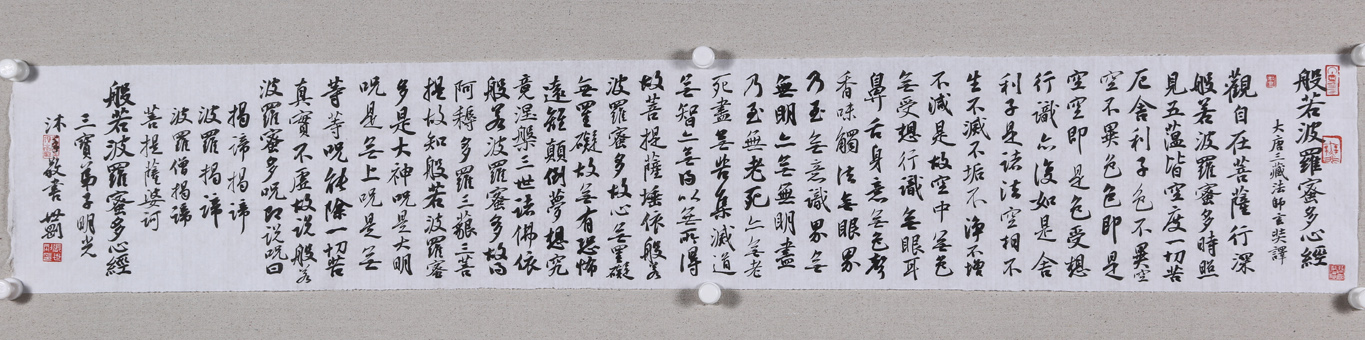 般若波羅蜜多心經
大唐三藏法師玄奘譯
觀自在菩薩行深
般若波羅蜜多時照
見五蕴皆空度一切苦
厄舍利子色不異空
空不異色色即是
空空即是色受想
行識亦復如是舍
利子是諸法空相不
生不滅不垢不淨不增
不減是故空中無色
無受想行識無眼耳
鼻舌身意無色聲
香味觸法無眼界
乃至無意識界無
無明亦無無明盡
乃至無老死亦無老
死盡無苦集滅道
無智亦無得以無所得
故菩提薩埵依般若
波羅蜜多故心無罣礙
無罣礙故無有恐怖
遠離顛倒夢想究
竟涅槃三世諸佛依
般若波羅蜜多故得
阿耨多羅三藐三菩
提故知般若波羅蜜
多是大神呪是大明
呪是無上呪是無
等等呪能除一切苦
真實不虛故說般若
波羅蜜多呪即說呪曰
揭諦揭諦
波羅揭諦
波羅僧揭諦
菩提薩婆訶
般若波羅蜜多心經
三寶弟子明光
沐手敬書